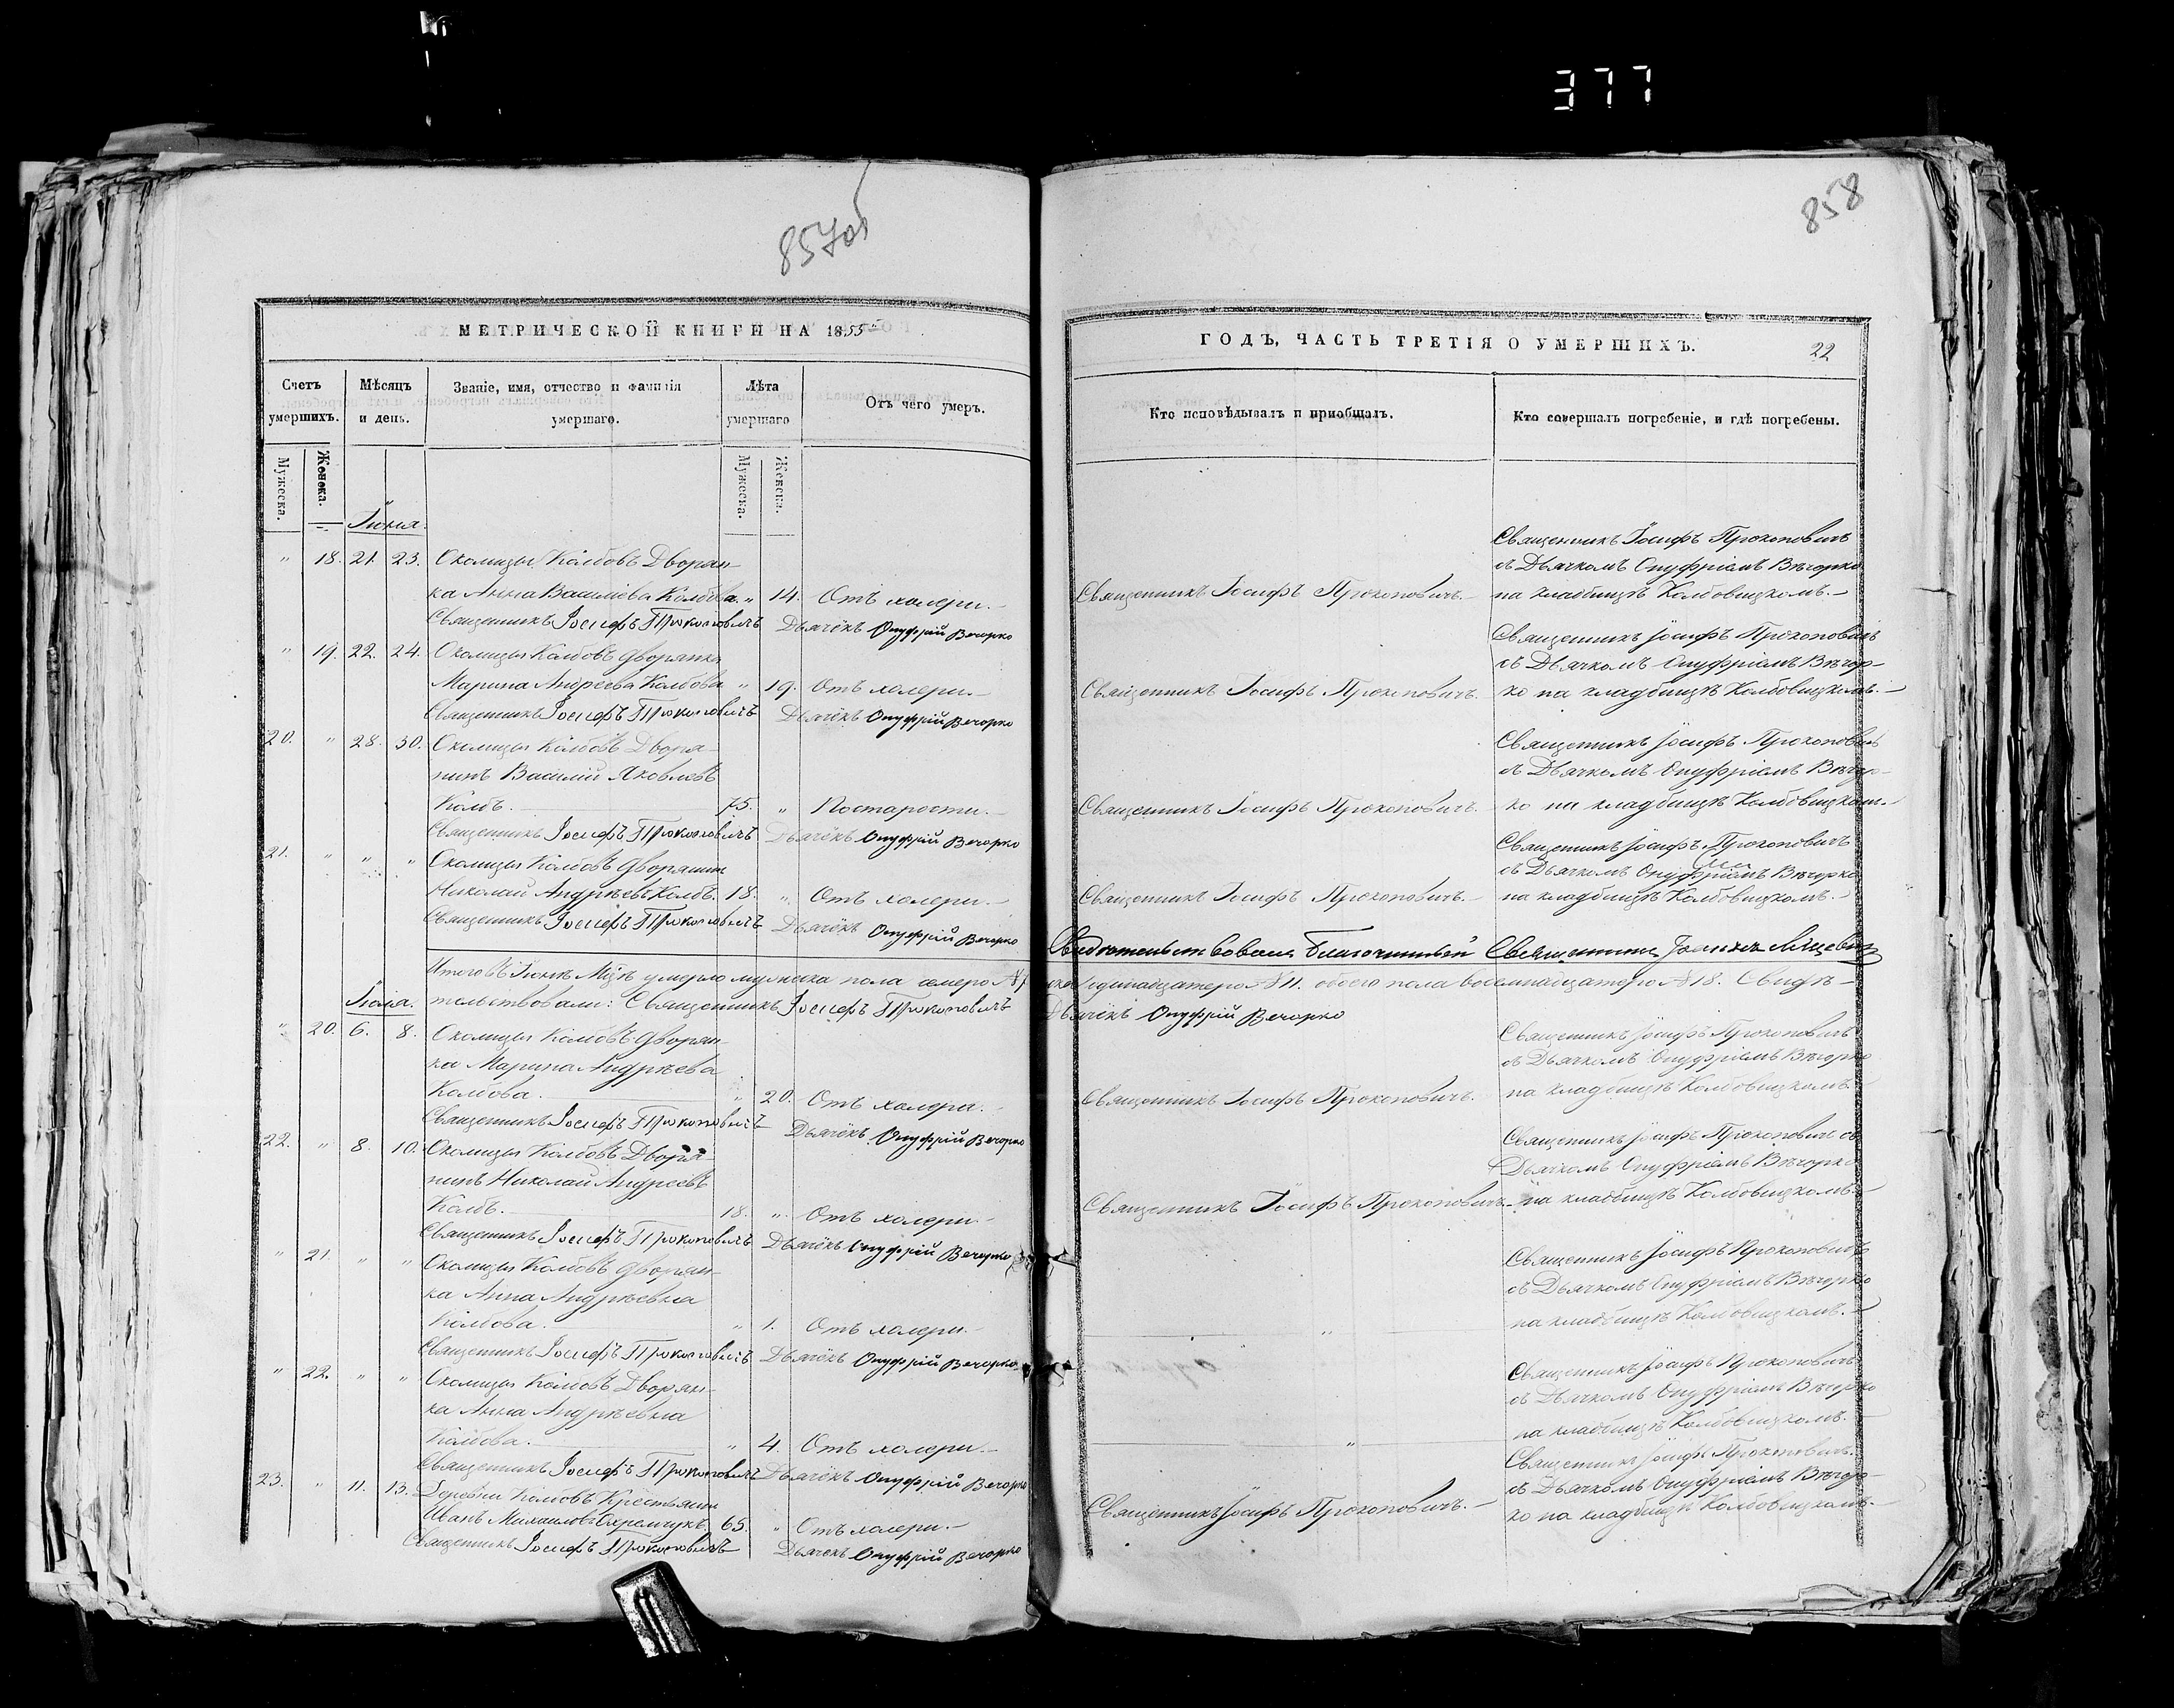 377
857об
МЕТРИЧЕСКОЙ КНИГИ НА 1855
Счетъ умершихъ.
Мѣсяцъ и день.
Званіе, имя, отчество и фамилія умершаго.
Лѣта умершаго
Отъ чего умеръ.
Мужеска.
Женска.
Мужеска.
Женска.
Іюня.
" 18. 21. 23. Околицы Колбовъ Дворян-
ка Анна Василіева Колбова. " 14. Отъ холери.
Священникъ Іосифъ Прокоповичъ Дьячёкъ Онуфрій Вечорко
" 19. 22. 24. Околицы Колбовъ дворянка
Марина Андреева Колбова " 19. Отъ холери.
Священникъ Іосифъ Прокоповичъ Дьячёкъ Онуфрій Вечорко
20. " 28. 30. Околицы Колбовъ Дворя-
нинъ Василій Яковлевъ
Колбъ. 75. " Постарости.
Священникъ Іосифъ Прокоповичъ Дьячёкъ Онуфрій Вечорко
21. " " " Околицы Колбовъ дворянин
Николай Андрѣевъ Колбъ. 18. " Отъ холери.
Священникъ Іосифъ Прокоповичъ Дьячёкъ Онуфрій Вечорко
Итого въ Іюнѣ Мцѣ умерло мужеска пола семеро №7
Іюля. тельствовали: Священникъ Іосифъ Прокоповичъ
" 20. 6. 8. Околицы Колбовъ дворян-
ка Марина Андрѣева
Колбова. " 20. Отъ холери.
Священникъ Іосифъ Прокоповичъ Дьячёкъ Онуфрій Вечорко
22. " 8. 10. Околицы Колбовъ Дворя-
нинъ Николай Андреевъ
Колбъ. 18. " Отъ холери.
Священникъ Іосифъ Прокоповичъ Дьячёкъ Онуфрій Вечорко
" 21. " " Околицы Колбовъ дворян-
ка Анна Андрѣевна
Колбова. " 1. Отъ холери.
Священникъ Іосифъ Прокоповичъ Дьячёкъ Онуфрій Вечорко
" 22. " " Околицы Колбовъ Дворян-
ка Анна Андрѣевна
Колбова. " 4. Отъ холери.
Священникъ Іосифъ Прокоповичъ Дьячёкъ Онуфрій Вечорко
23. " 11. 13. Деревни Колбовъ Крестьянин
Иванъ Михаиловъ Охремчукъ 65. " Отъ холери.
Священникъ Іосифъ Прокоповичъ Дьячёкъ Онуфрій Вечорко
858
ГОДЪ, ЧАСТЬ ТРЕТІЯ О УМЕРШИХЪ.
22
Кто исповѣдывалъ и пріобщалъ.
Кто совершалъ погребеніе, и гдѣ погребены.
Священникъ Іосифъ Прокоповичъ
съ Дьячкомъ Онуфріемъ Вѣчорко
Священникъ Іосифъ Прокоповичъ. на кладбищѣ Колбовицкомъ.
Священникъ Іосифъ Прокоповичъ
съ Дьячкомъ Онуфріемъ Вѣчор-
Священникъ Іосифъ Прокоповичъ. ко на кладбищѣ Колбовицкомъ.
Священникъ Іосифъ Прокоповичъ
съ Дьячкомъ Онуфріемъ Вѣчор-
Священникъ Іосифъ Прокоповичъ. ко на кладбищѣ Колбовицкомъ.
Священникъ Іосифъ Прокоповичъ
съ Дьячкомъ Онуфріемъ Вѣчорко
Священникъ Іосифъ Прокоповичъ. на кладбищѣ Колбовицкомъ.
Свидѣтельствовалъ Благочинный Священникъ
одинадцатеро №11. обоего пола восемнадцатеро №18. Свидѣ-
Дьячёкъ Онуфрій Вечорко
Священникъ Іосифъ Прокоповичъ
съ Дьячкомъ Онуфріемъ Вѣчорко
Священникъ Іосифъ Прокоповичъ. на кладбищѣ Колбовицкомъ.
Священникъ Іосифъ Прокоповичъ съ
Дьячкомъ Онуфріемъ Вѣчорко
Священникъ Іосифъ Прокоповичъ. на кладбищѣ Колбовицкомъ.
Священникъ Іосифъ Прокоповичъ
съ Дьячкомъ Онуфріемъ Вѣчорко
" на кладбищѣ Колбовицкомъ.
Священникъ Іосифъ Прокоповичъ
съ Дьячкомъ Онуфріемъ Вѣчорко
" на кладбищѣ Колбовицкомъ.
Священникъ Іосифъ Прокоповичъ.
съ Дьячкомъ Онуфріемъ Вѣчор-
Священникъ Іосифъ Прокоповичъ. ко на кладбищѣ Колбовицкомъ.